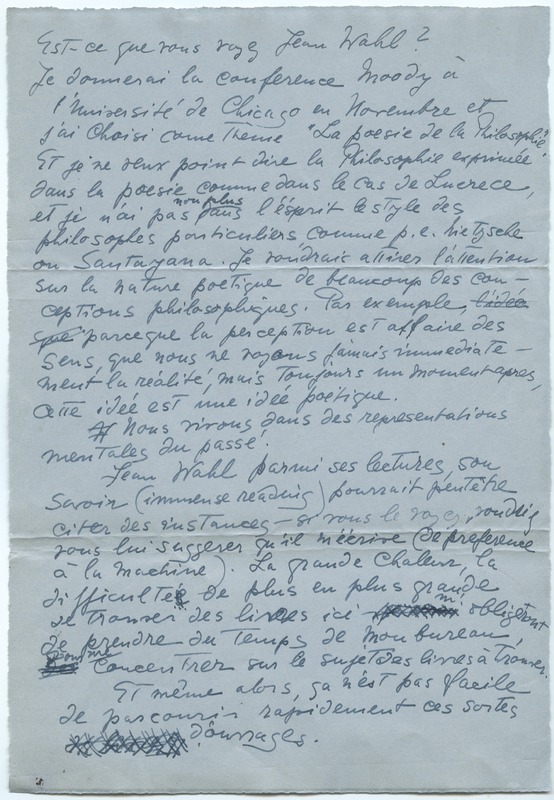 Est-ce que vous voyez Jean Wahl?
Je donnerai la conference Moody à
l'Université de Chicago en Novembre et
j'ai choisi comme theme "La poesie de la Philosophie"
Et je ne veux point dire la Philosophie exprimée
dans la poesie comme dans le cas de Lucrece,
non plus
et je n'ai pas dans l'ésprit le style des
philosophes particuliers comme p.e. Nietzsche
ou Santayana. Je voudrais attirer l'attention
sur la nature poetique de beaucoup des con-
ceptions philosophiques. Par exemple, l'idée
que parceque la perception est affaire des
sens, que nous ne voyons jamais immediate-
ment la réalité, mais toujours un moment apres,
cette idée est une idée poetique.
Nous vivons dans des representations
mentales du passé.
Jean Wahl parmi ses lectures, son
savoir (immense reading) pourrait peutêtre
citer des instances - si vous le voyez, voudriez
vous lui suggerer qu'il m'écrive (de preference
à la machine). La grande chaleur, la
difficulté de plus en plus grande
de trouver des livres ici m'obligeront
de prendre du temps de mon bureau,
pour me
concentrer sur le sujet des livres à trouver.
Et même alors, ça n'est pas facile
de parcourir rapidement ces sortes
d'ouvrages.